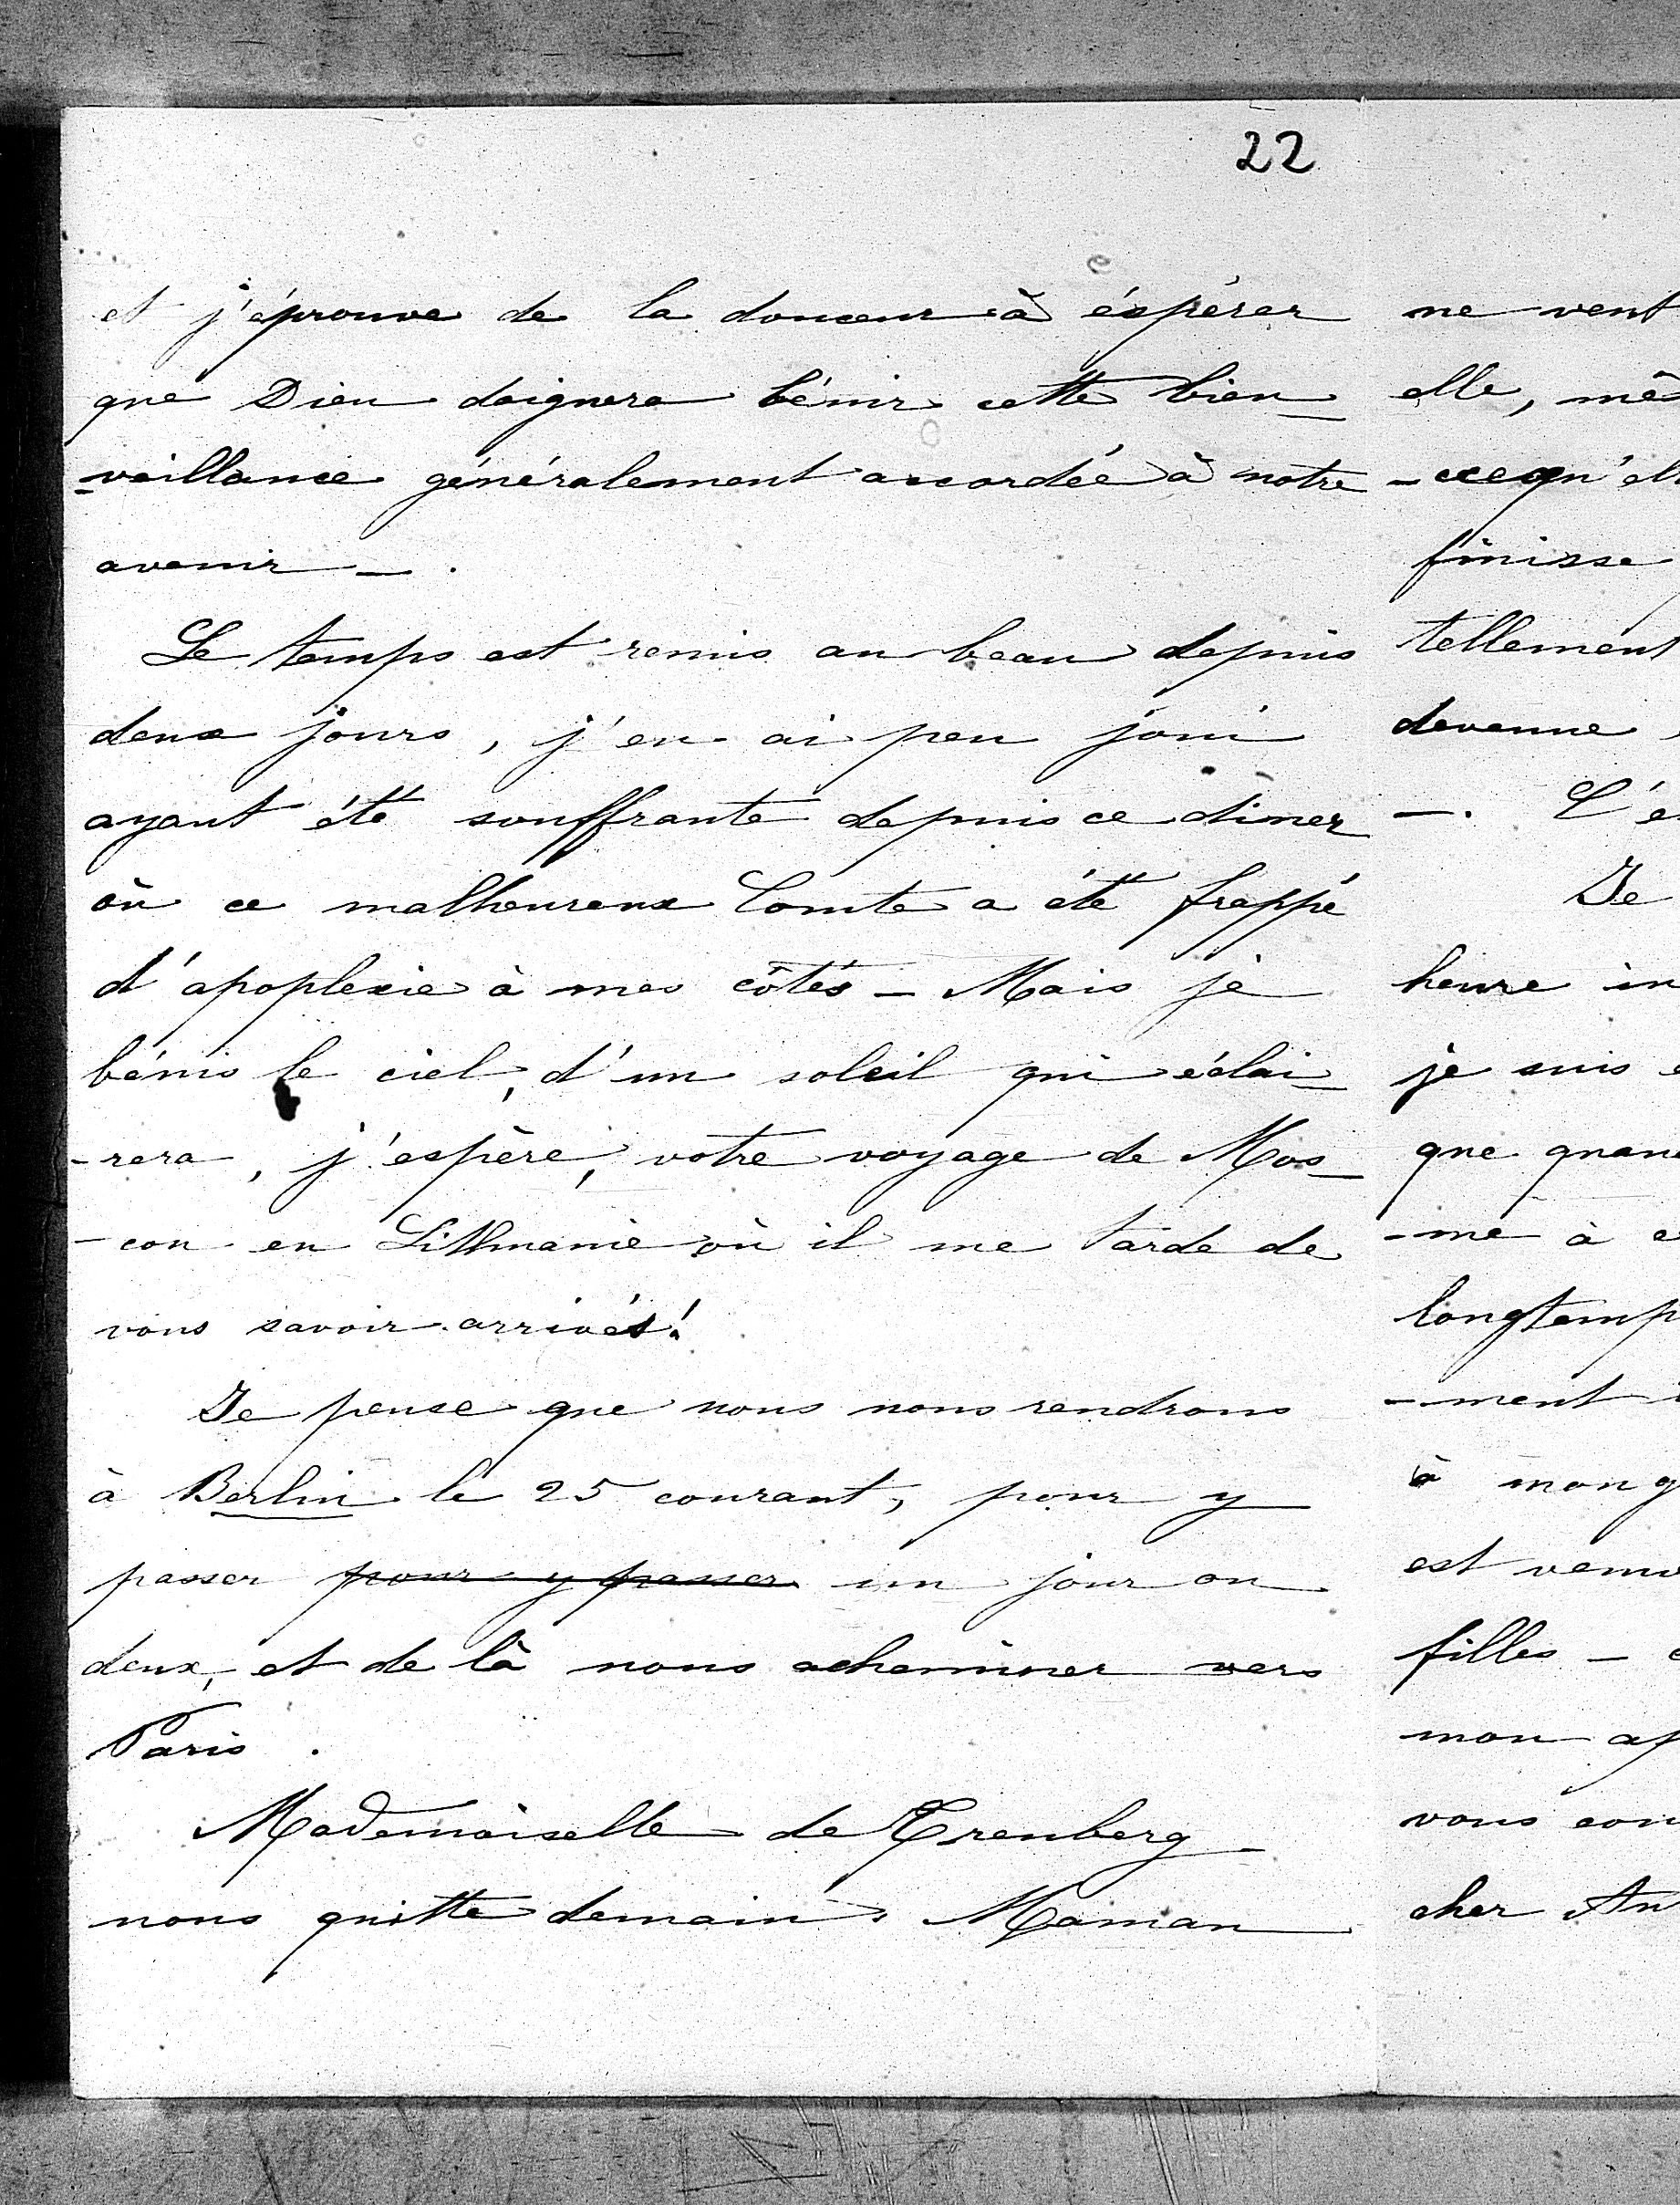 22
et j'éprouve de la douceur à éspérer
que Dieu daignera bénir cette bien-
-veillance généralement accordée à notre
avenir -.
Le temps est remis au beau depuis
deux jours, j'en ai peu joui
ayant été souffrante depuis ce diner
où ce malheureux Comte a été frappé
d'apoplexie à mes côtés - Mais je
bénis le ciel, d'un soleil qui éclai-
-rera, j'espère, votre voyage de Mos-
-cou en Lithuanie où il me tarde de
vous savoir arrivés!
Je pense que nous nous rendrons
à Berlin le 25 courant, pour y
passer pour y passer un jour ou
deux, et de là nous acheminer vers
Paris.
Mademoiselle de Erenberg
nous quitte demain, Maman
ne veut
elle, mê
-ce qu'ell
finisse
tellement
devenue,
-. C'e
Je
heure in
je suis e
que quan
-me à c
longtemp
-ment i
à mon g
est venu
filles - e
mon ap
vous con
cher An